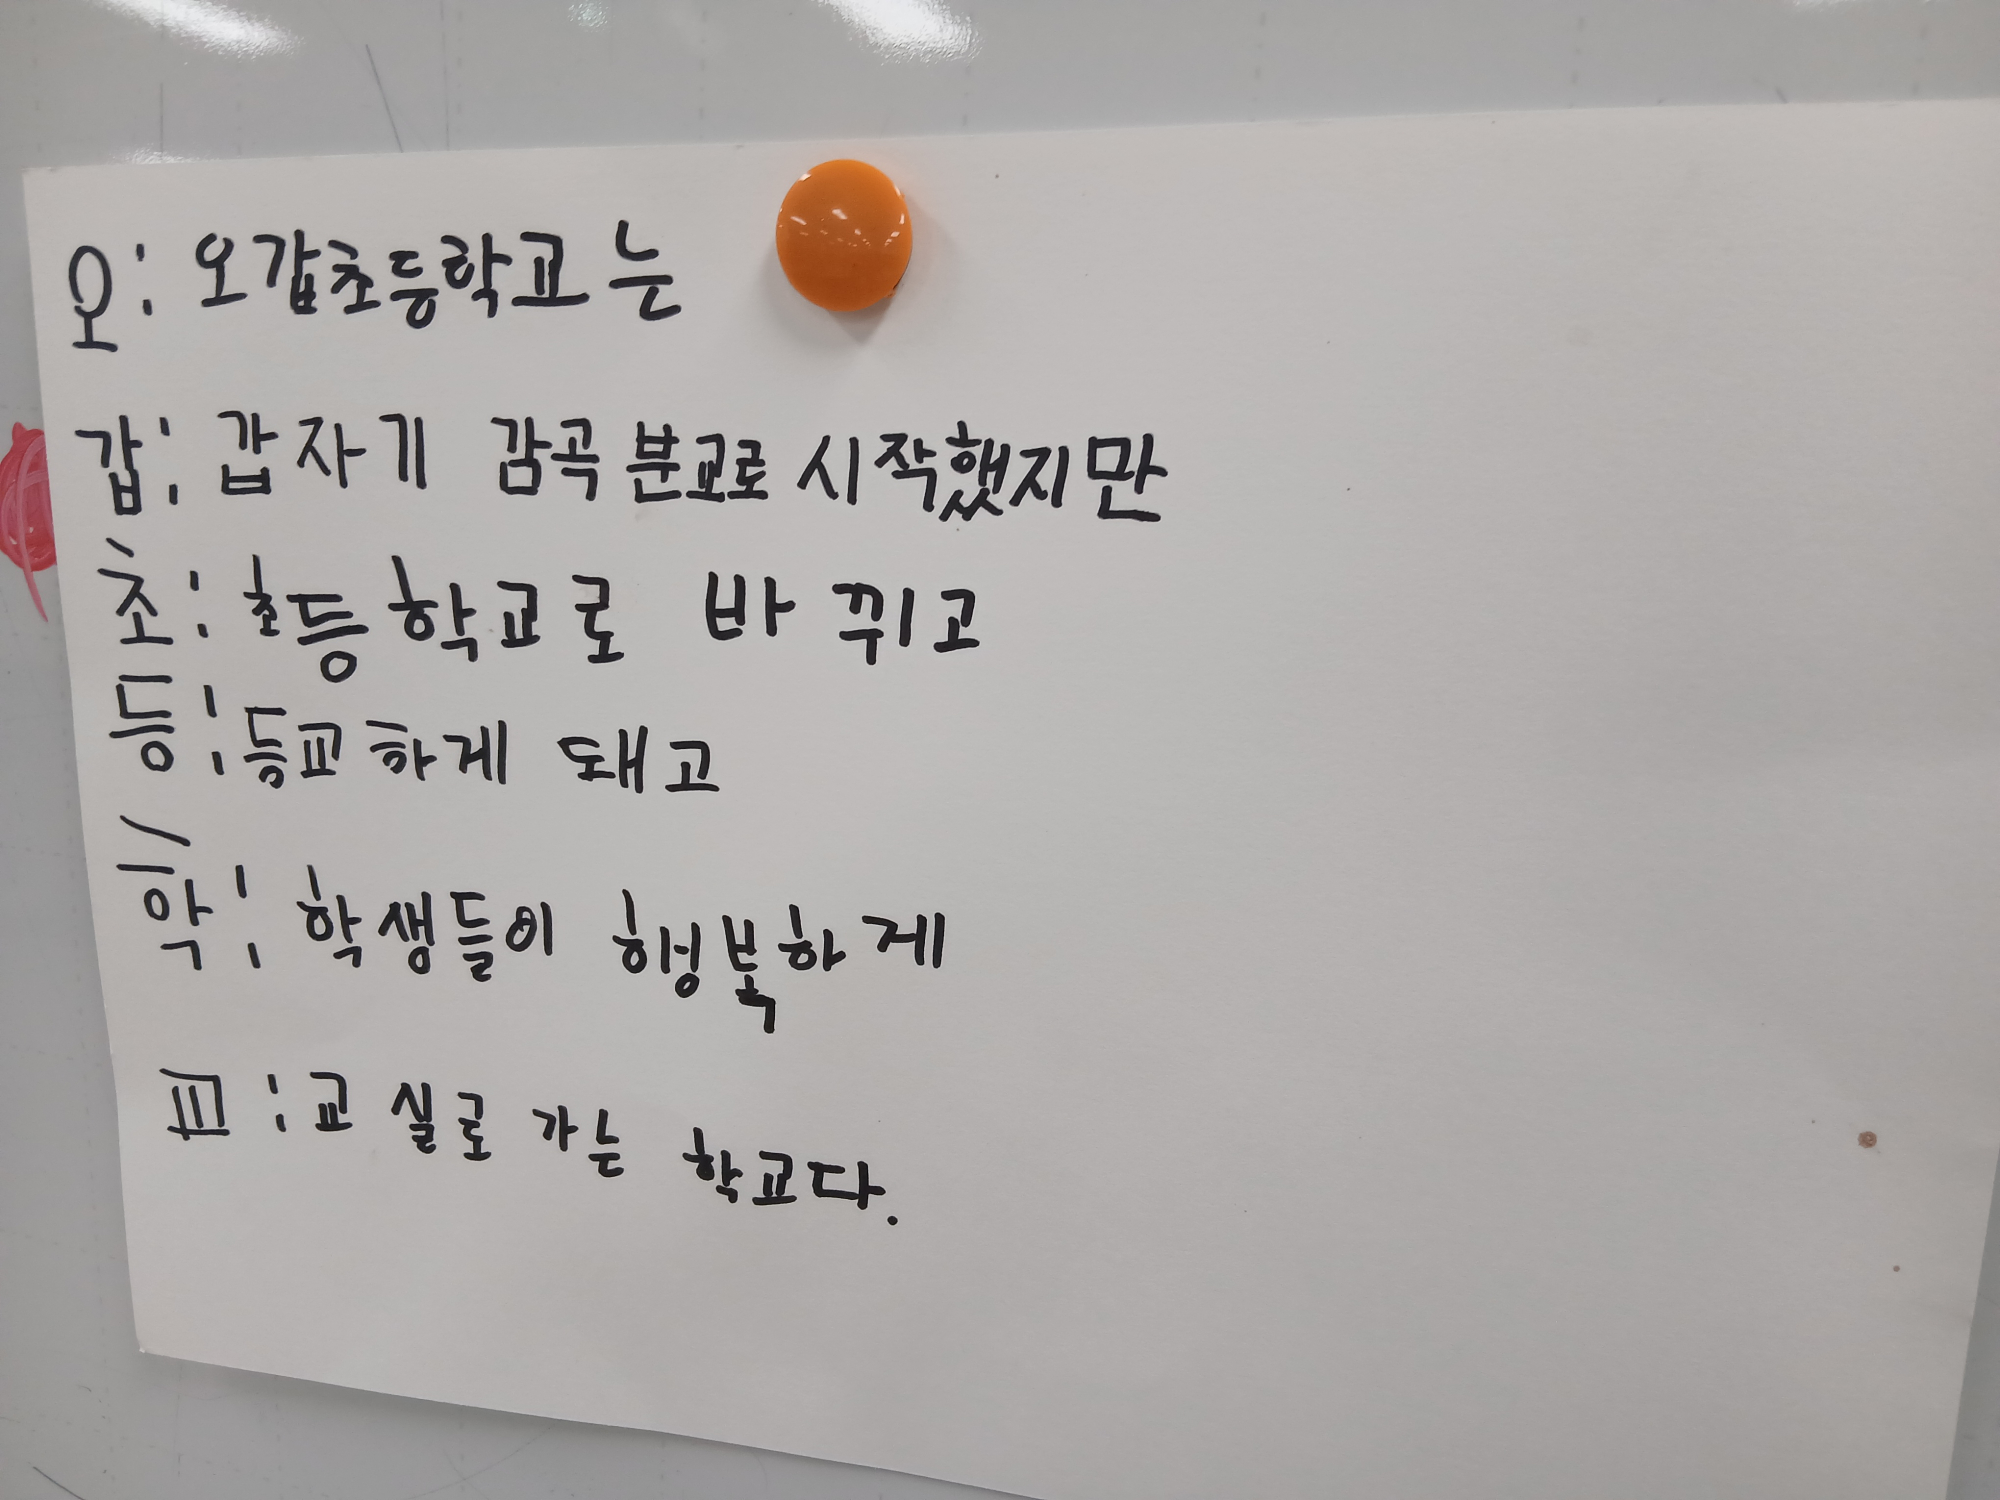 오: 오갑초등학교는
갑: 갑자기 감곡 분교로 시작했지만
초: 초등학교로 바뀌고
등: 등교하게 돼고
학: 학생들이 행복하게
교: 교실로 가는 학교다.